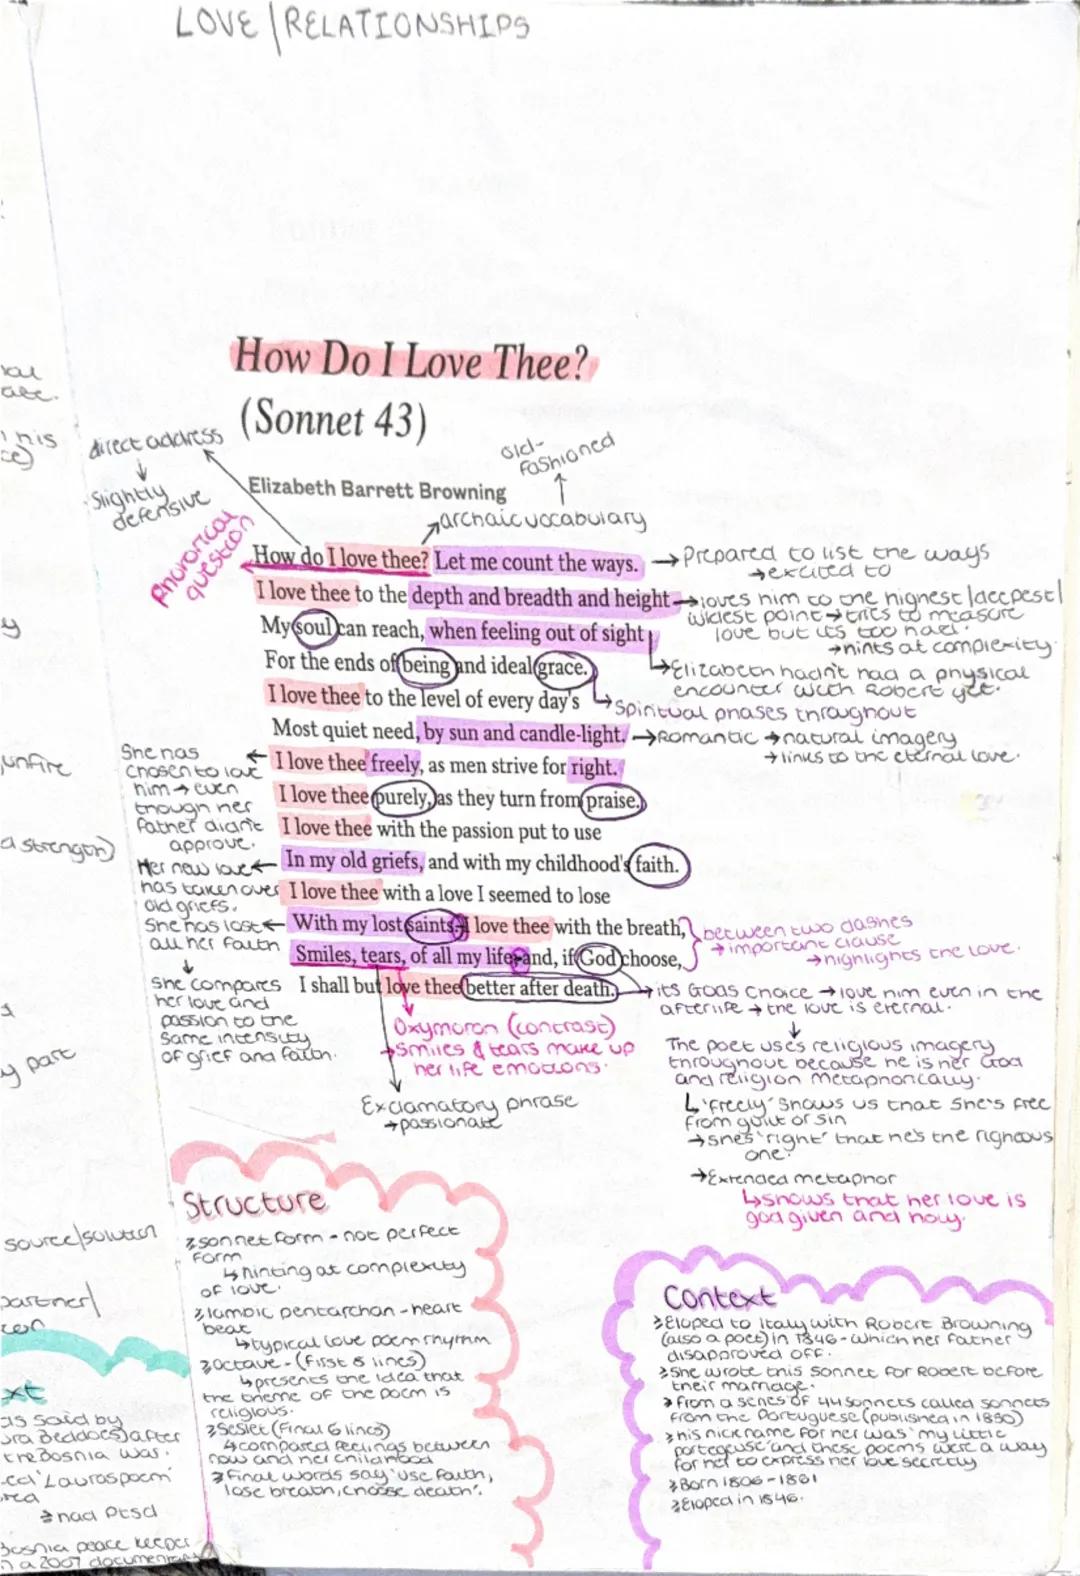 LOVE / RELATIONSHIPS
How Do I Love Thee?
(Sonnet 43)
Elizabeth Barrett Browning
direct address
Slightly
defensive
Rhetorical
question
old-
fashioned
archaic vocabulary
How do I love thee? Let me count the ways.
I love thee to the depth and breadth and height
My soul can reach, when feeling out of sight
For the ends of being and ideal grace.
I love thee to the level of every day's
Most quiet need, by sun and candle-light.
I love thee freely, as men strive for right.
I love thee purely, as they turn from praise.
I love thee with the passion put to use
In my old griefs, and with my childhood's faith.
I love thee with a love I seemed to lose
With my lost saints – I love thee with the breath,
Smiles, tears, of all my life – and, if God choose,
I shall but love thee better after death.
→ Prepared to list the ways
→ excited to
→ loves him to the highest/deepest/
widest point → tries to measure
love but its too hard.
→ hints at complexity.
→ Elizabeth hadn't had a physical
encounter with Robert yet.
↳ Spiritual phases throughout
→ Romantic → natural imagery
→ links to the eternal love.
She has
chosen to love
him → even
though her
father didn't
approve.
Her new love
has taken over
old griefs.
She has lost
all her faith
↓
She compares
her love and
passion to the
same intensity
of grief and faith.
between two dashes
→ important clause
→ highlights the love.
→ its Gods choice → love him even in the
afterlife → the love is eternal.
↓
The poet uses religious imagery
throughout because he is her God
and religion metaphorically.
↳ 'freely' shows us that she's free
from guilt or sin
→ she's 'right' that he's the righteous
one.
→ Extended metaphor
↳ shows that her love is
god given and holy.
Oxymoron (contrast)
→ smiles & tears make up
her life emotions.
Exclamatory phrase
→ passionate
Structure
sonnet form - not perfect
form
↳ hinting at complexity
of love.
Iambic pentarchan - heart
beat
↳ typical love poem rhythm
octave - (first 8 lines)
↳ presents the idea that
the theme of the poem is
religious.
Seslet (Final 6 lines)
↳ compared feelings between
now and her childhood
Final words say 'use faith,
lose breath, choose death'.
Context
Eloped to Italy with Robert Browning
(also a poet) in 1846 - which her father
disapproved off.
She wrote this sonnet for Robert before
their marriage.
From a series of 44 sonnets called sonnets
from the Portuguese (published in 1850)
his nickname for her was 'my little
portegeuse' and these poems were a way
for her to express her love secretly
Born 1806 - 1861
Eloped in 1846.
a strength)
y part
source/solution
partner/
as said by
Beddoes) after
the Bosnia war.
'Lauras poem'
had PTSD
Bosnia peace keeper
a 2007 documentary